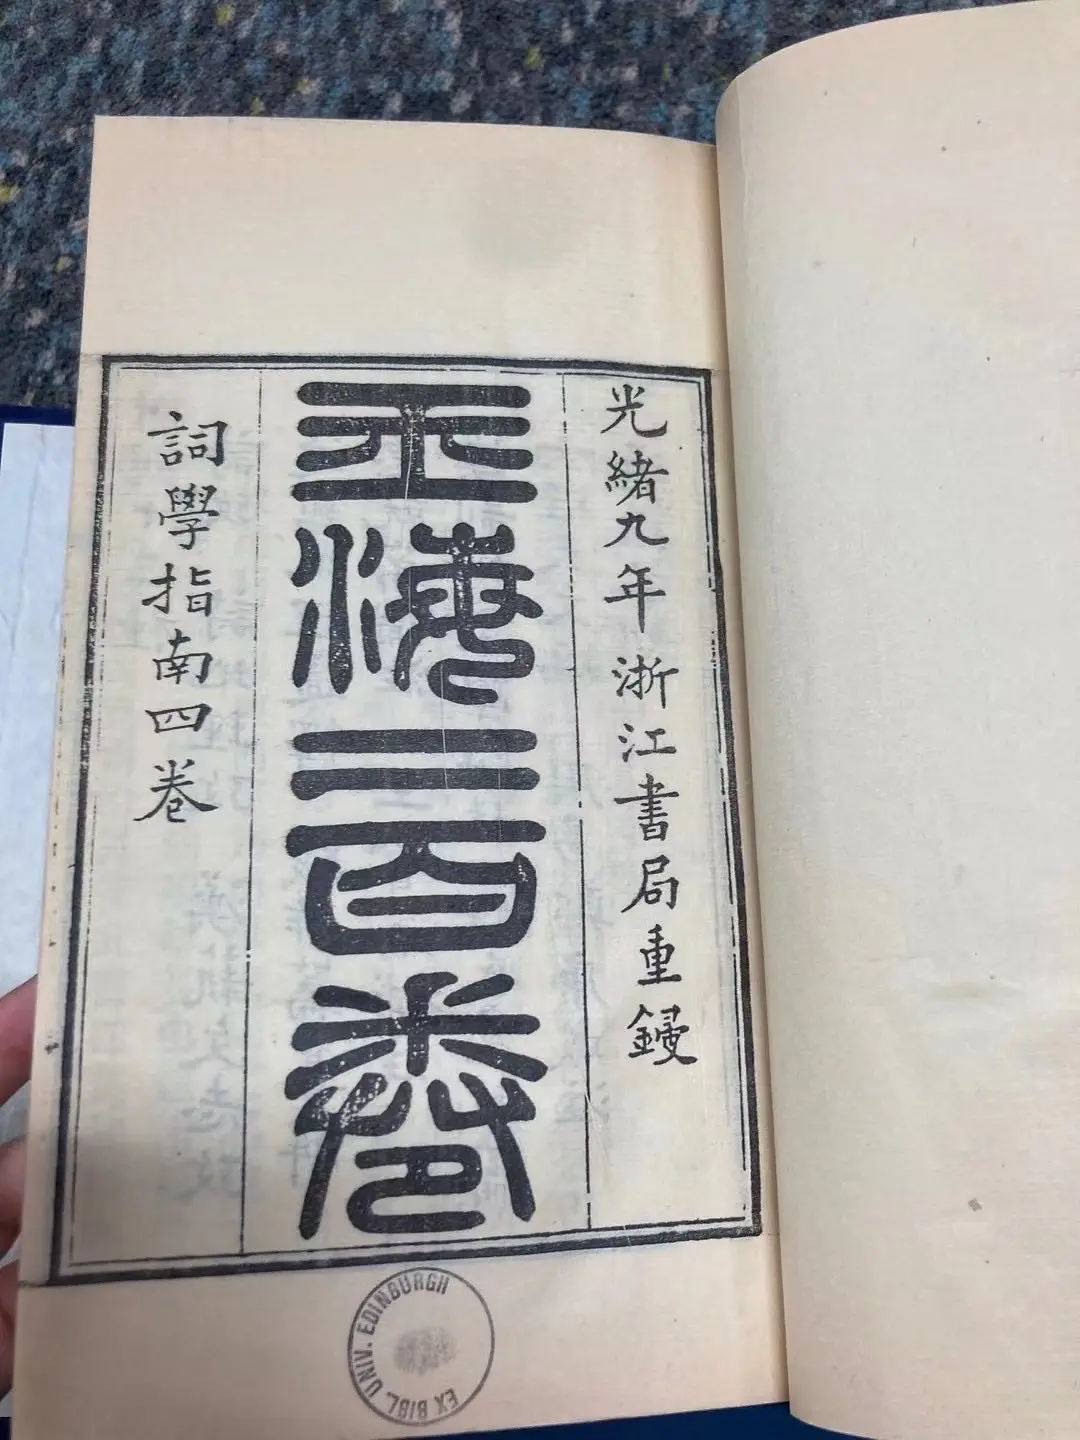 光緒九年浙江書局重鋟
玉海二百卷
詞學指南四卷
EX BIBL. UNIV. EDINBURGH